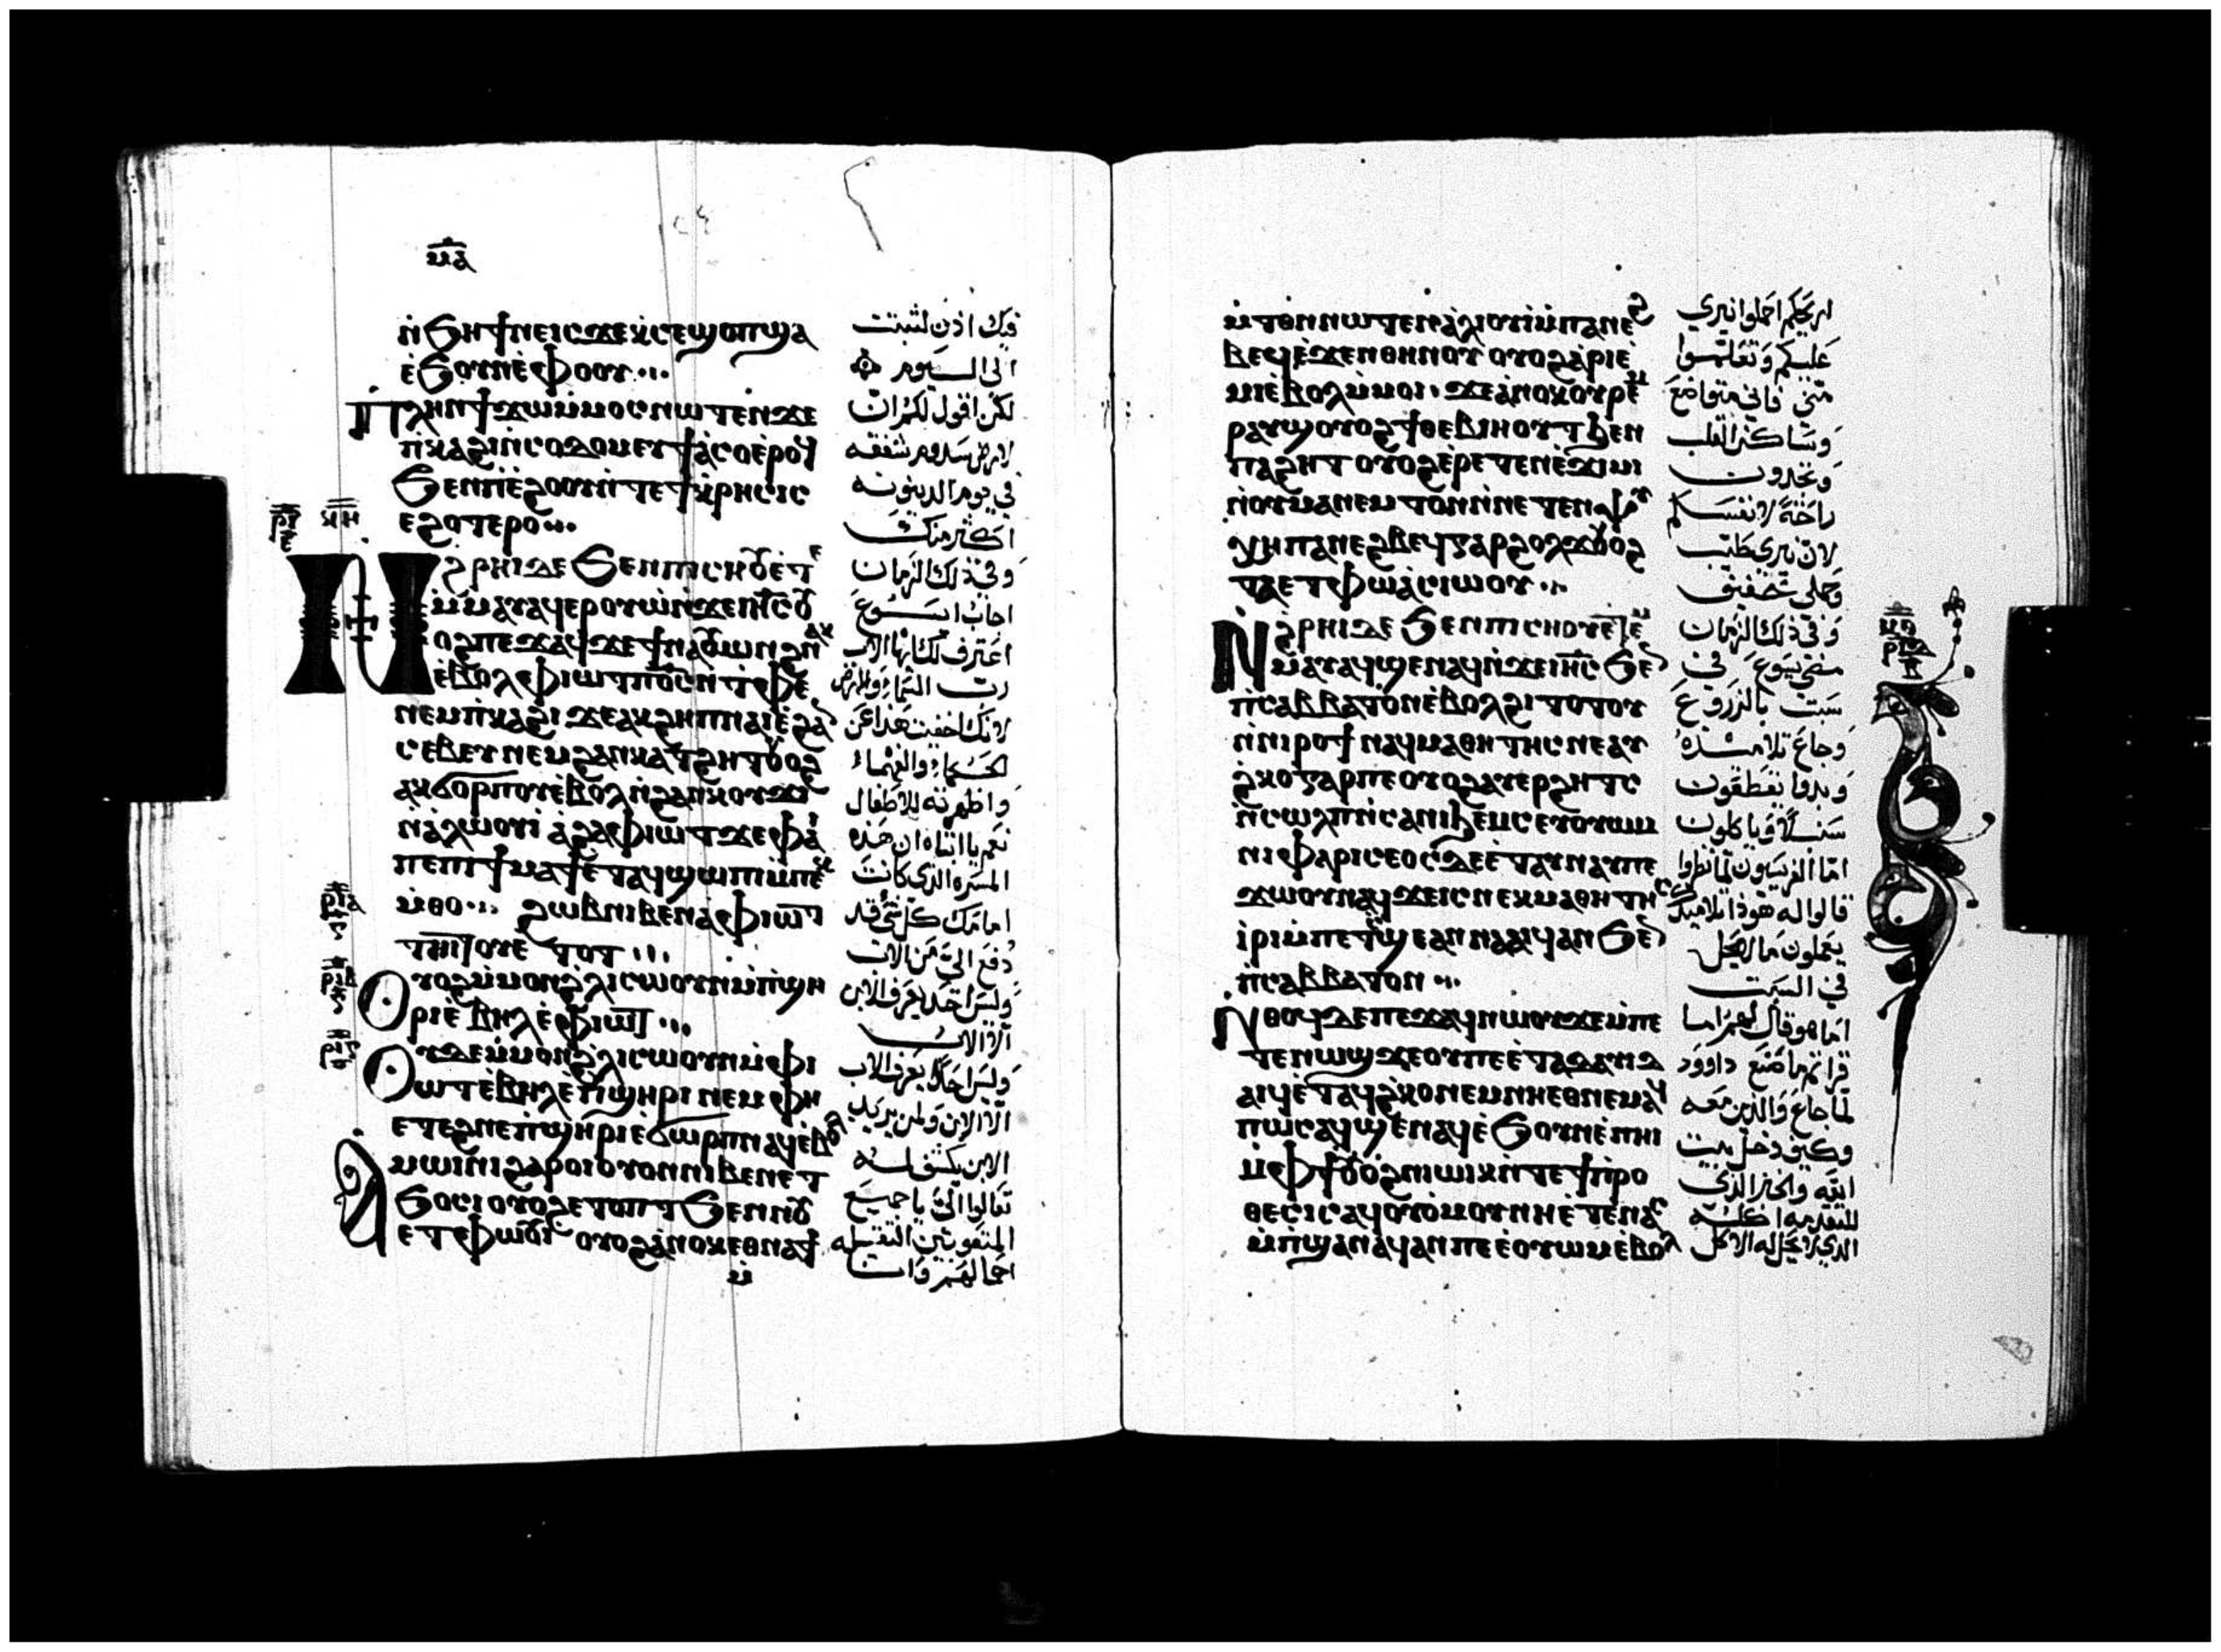 ⲙⲁ
ⲛ̇ϧⲏϯ ⲛⲉⲓⲥϫⲉⲭ̇ⲥⲉϣⲟⲡϣⲁ
ⲉ̇ϧⲟⲩⲛⲉ̇ⲫⲟⲟⲩ
ⲡⲗⲏⲛϯϫⲱⲙ̇ⲙⲟⲥⲛⲱⲧⲉⲛϫⲉ
ⲡ̇ⲕⲁϩⲓⲛ̇ⲥⲟⲇⲟⲙⲉⲩϯⲁ̇ⲥⲟⲉ̇ⲣⲟϥ
ϧⲉⲛⲡⲓⲉ̇ϩⲟⲟⲩⲛ̇ⲧⲉϯⲕ̇ⲣⲏⲥⲓⲥ
ⲉϩⲟⲧⲉⲣⲟ
ⲛϩⲣⲏⲓⲇⲉ ϧⲉⲛⲡⲓⲥⲏⲟⲩⲉ̇ⲧⲉ
ⲙ̇ⲙⲁⲩⲁϥⲉⲣⲟⲩⲱ̇ⲛ̇ϫⲉⲓⲏ̅ⲥ̅ⲟⲩ
ⲟϩⲡⲉϫⲁϥϫⲉϯⲛⲁⲟⲩⲱⲛϩⲛⲁⲕ
ⲉ̇ⲃⲟⲗⲫⲓⲱⲧⲡ̅ⲟ̅ⲥ̅ⲛ̇ⲧⲫⲉ
ⲛⲉⲙⲡ̇ⲕⲁϩⲓ ϫⲉⲁⲕϩⲏⲡⲛⲁⲓⲉ̇ϩⲁⲛ
ⲥⲉⲃⲉⲩⲛⲉⲙϩⲁⲛⲕⲁⲧϩⲏⲧⲟⲩⲟϩ
ⲁⲕϭⲟⲣⲡⲟⲩⲉ̇ⲃⲟⲗⲛ̇ϩⲁⲛⲕⲟⲩϫⲓ
ⲛ̇ⲁ̇ⲗⲱⲟⲩⲓ̇ ⲁ̇ϩⲁⲫⲓⲱⲧϫⲉⲫⲁⲓ
ⲡⲉⲡⲓϯⲙⲁϯⲉ̇ⲧⲁϥϣⲱⲡⲓⲙ̇ⲡⲉⲕ
ⲙ̇ⲑⲟ ϩⲱⲃⲛⲓⲃⲉⲛⲁ̇ⲫⲓⲱⲧ
ⲧⲏⲓⲧⲟⲩⲉ̇ⲧⲟⲧ
ⲟⲩⲟϩⲙ̇ⲙⲟⲛϩ̇ⲗⲓⲥⲱⲟⲩⲛⲙ̇ⲡ̇ϣⲏ
ⲣⲓⲉ̇ⲃⲏⲗⲉ̇ⲫⲓⲱⲧ
ⲟⲩⲇⲉⲙ̇ⲙⲟⲛϩ̇ⲗⲓⲥⲱⲟⲩⲛⲙ̇ⲫⲓ
ⲱⲧⲉ̇ⲃⲏⲗⲉ̇ⲡ̇ϣⲏⲣⲓ ⲛⲉⲙⲫⲏ
ⲉⲧⲉϩⲛⲉⲡ̇ϣⲏⲣⲓⲉ̇ϭⲱⲣⲡⲛⲁϥⲉ̇ⲃⲟⲗ
ⲁⲙⲱⲓⲛⲓϩⲁⲣⲟⲓⲟⲩⲟⲛⲛⲓⲃⲉⲛⲉⲧ
ϧⲟⲥⲓⲟⲩⲟϩⲉⲧⲟⲡⲧϧⲉⲛⲛⲟⲩ
ⲉⲧⲫⲱⲟⲩⲓ ⲟⲩⲟϩⲁ̇ⲛⲟⲕⲉⲑⲛⲁϯ
ⲙ̇
فيك اذن لثبتت
الى اليوم
لكن اقول لكم ان
لارض سدوم شفقه
في يوم الدينونه
اكثر منك
وفي ذلك الزمان
اجاب يسوع
اعترف لك ايها الاب
رب السماء والارض
لانك اخفيت هذا عن
الحكماء والفهماء
واظهرته للاطفال
نعم يا ابتاه ان هذه
المسره الذي كانت
امامك كل شي قد
دفع الي من الاب
وليس احد يعرف الابن
الا الاب
وليس احد يعرف الاب
الا الابن ولمن يريد
الابن يكشف له
تعالوا الي يا جميع
المتعوبين الثقيله
احمالهم وانا
ⲙ̇ⲧⲟⲛⲛⲱⲧⲉⲛⲁ̇ⲗⲓⲟⲩⲓ̇ⲙ̇ⲡⲁⲛⲁϩ
ⲃⲉϥⲉ̇ϫⲉⲛⲑⲏⲛⲟⲩ ⲟⲩⲟϩⲁ̇ⲣⲓⲉ̇
ⲙⲓⲉ̇ⲃⲟⲗⲙ̇ⲙⲟⲓ ϫⲉⲁ̇ⲛⲟⲕⲟⲩⲣⲉⲙ
ⲣⲁⲩϣⲟⲩⲟϩϯⲑⲉⲃⲓⲏⲟⲩⲧϧⲉⲛ
ⲡⲁϩⲏⲧ ⲟⲩⲟϩⲉ̇ⲣⲉⲧⲉⲛⲉ̇ϫⲓⲙⲓ
ⲛ̇ⲟⲩⲙⲁⲛⲉⲙⲧⲟⲛⲛ̇ⲛⲉⲧⲉⲛⲯⲩ
ⲭⲏⲡⲁⲛⲁϩⲃⲉϥⲅⲁⲣϩⲟⲗϫⲟⲩⲟϩ
ⲧⲁⲉⲧⲫⲱⲁ̇ⲥⲓⲱⲟⲩ
ⲛ̇ϩⲣⲏⲓⲇⲉ ϧⲉⲛⲡⲓⲥⲏⲟⲩⲉ̇ⲧⲉⲙ
ⲙ̇ⲁⲩⲁϥϣⲉⲛⲁϥⲛ̇ϫⲉⲓⲏ̅ⲥ̅ ϧⲉⲛ
ⲡ̇ⲥⲁⲃⲃⲁⲧⲟⲛⲉ̇ⲃⲟⲗϩⲓⲧⲟⲧⲟⲩ
ⲛ̇ⲛⲓⲣⲟϯ ⲛⲁϥⲙⲁⲑⲏⲧⲏⲥⲛⲉⲁⲩ
ϩ̇ⲕⲟⲅⲁⲣⲡⲉⲟⲩⲟϩⲁⲩⲉⲣϩⲏⲧⲥ
ⲛ̇ⲥⲱⲗⲡⲛ̇ⲥⲁⲛⲓϧⲉⲙⲥⲉⲩⲟⲩⲱⲙ
ⲛⲓⲫⲁⲣⲓⲥⲉⲟⲥⲇⲉⲉ̇ⲧⲁⲩⲛⲁⲩⲡⲉ
ϫⲱⲟⲩⲛⲁϥϫⲉⲓⲥⲛⲉⲕⲙⲁⲑⲏⲧⲏⲥⲥⲉ
ⲓ̇ⲣⲓⲙ̇ⲡⲉⲧϣⲉⲁⲛⲛⲁⲁⲓϥⲁⲛ ϧⲉⲛ
ⲡ̇ⲥⲁⲃⲃⲁⲧⲟⲛ
ⲛ̇ⲑⲟϥⲇⲉⲡⲉϫⲁϥⲛⲱⲟⲩϫⲉⲙ̇ⲡⲉ
ⲧⲉⲛⲱϣϫⲉⲟⲩⲡⲉⲉ̇ⲧⲁⲇⲁⲩⲓⲇ
ⲁⲓϥⲉ̇ⲧⲁϥϩ̇ⲕⲟⲛⲉⲙⲛⲏⲉⲑⲛⲉⲙⲁϥ
ⲡⲱⲥⲁϥϣⲉⲛⲁϥⲉ̇ϧⲟⲩⲛⲉ̇ⲡⲏⲓ
ⲙ̇ⲫϯⲟⲩⲟϩⲛⲓⲱⲓⲕⲛ̇ⲧⲉϯⲡⲣⲟ
ⲑⲉⲥⲓⲥⲁϥⲟⲩⲟ̇ⲙⲟⲩⲛⲏⲉ̇ⲧⲉⲛⲁⲥ
ⲙ̇ⲡ̇ϣⲁⲛⲁϥⲁⲛⲡⲉⲉ̇ⲟⲩⲱⲙⲉ̇ⲃⲟⲗ
اريحكم احملوا نيري
عليكم وتعلموا
مني فاني متواضع
وساكن القلب
وتجدون
راحة لانفسكم
لان نيري طيب
وحملي خفيف
وفي ذلك الزمان
مضي يسوع في
سبت بالزروع
وجاع تلاميذه
وبدوا يقطعون
سنبلا وياكلون
اما الفريسيون لما نظروا
قالوا له هوذا تلاميذك
يعملون ما لا يحل
في السبت
اما هو قال لهم اما
قراتم ما صنع داوود
لما جاع والذين معه
وكيف دخل بيت
الله والخبز الذي
للتقدمه اكله
الذي لا يحل له الاكل